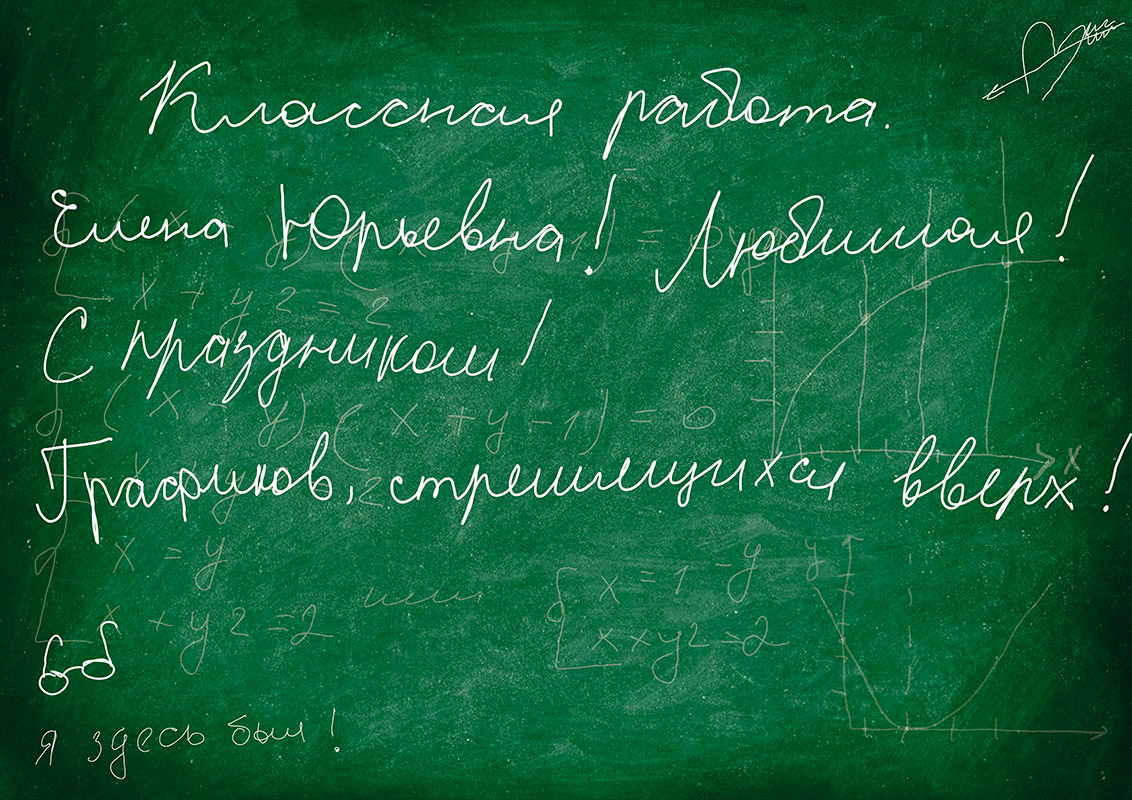 Классная работа.
Елена Юрьевна! Любимая!
С праздником!
Графиков, стремящихся вверх!
= 0
x + y 2 = 2
(x - y)(x + y - 1) = 0
x
x = y
+ y 2 = 2
или
x = 1 - y
x x y 2 - 2
y
Я здесь был!